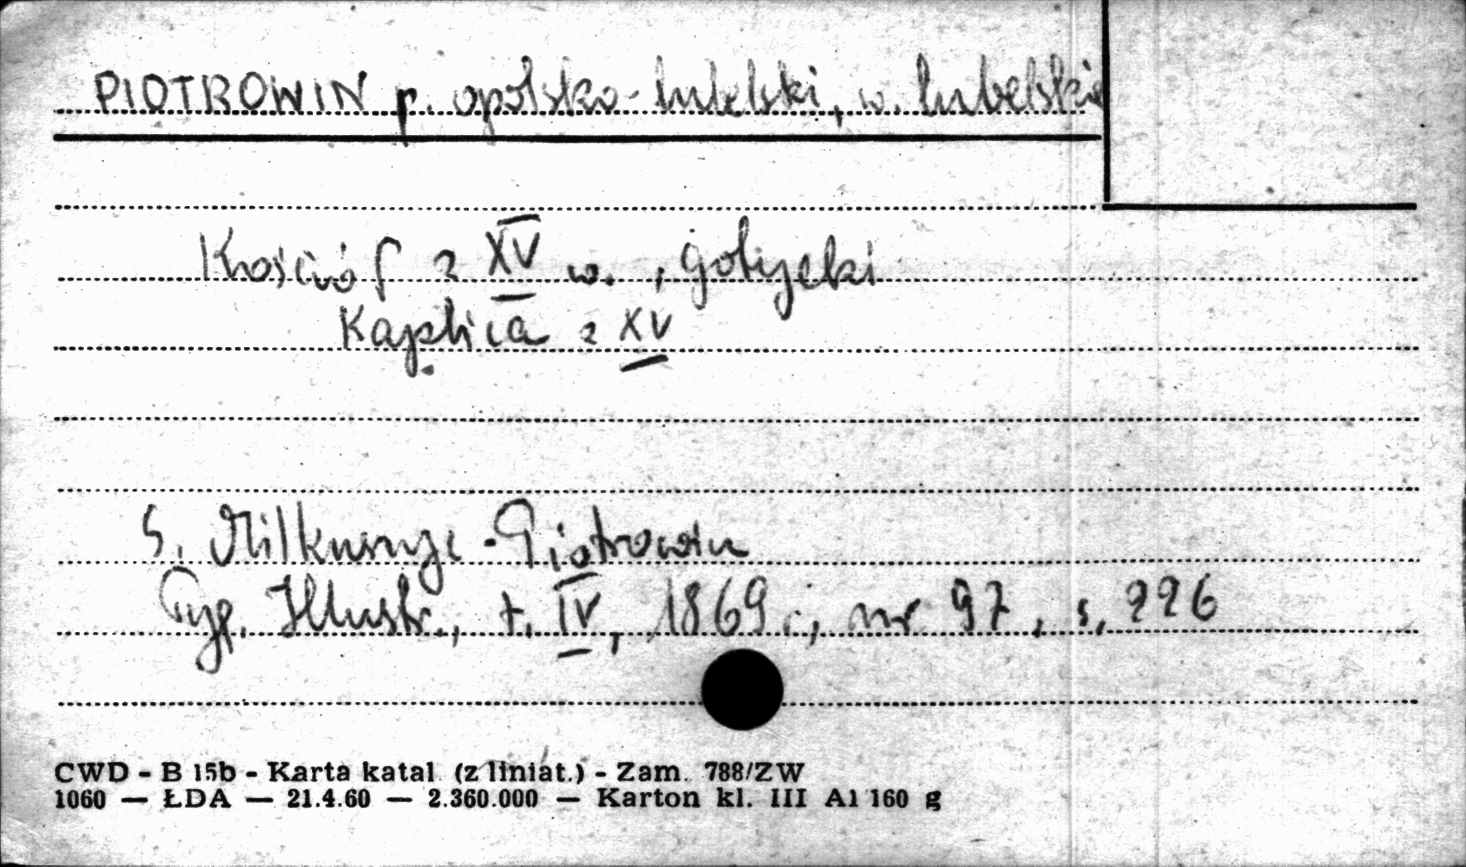 PIOTROWIN p. opolsko-lubelski, w. lubelskie
Kościół z XV w., gotycki
Kaplica z XV
S. Milkunyc - Piotrowin
Tyg. Illustr., t. IV, 1869 r., nr 97, s. 226
CWD - B 15b - Karta katal. (z liniat.) - Zam. 788/ZW
1060 — ŁDA — 21.4.60 — 2.360.000 — Karton kl. III A1 160 g